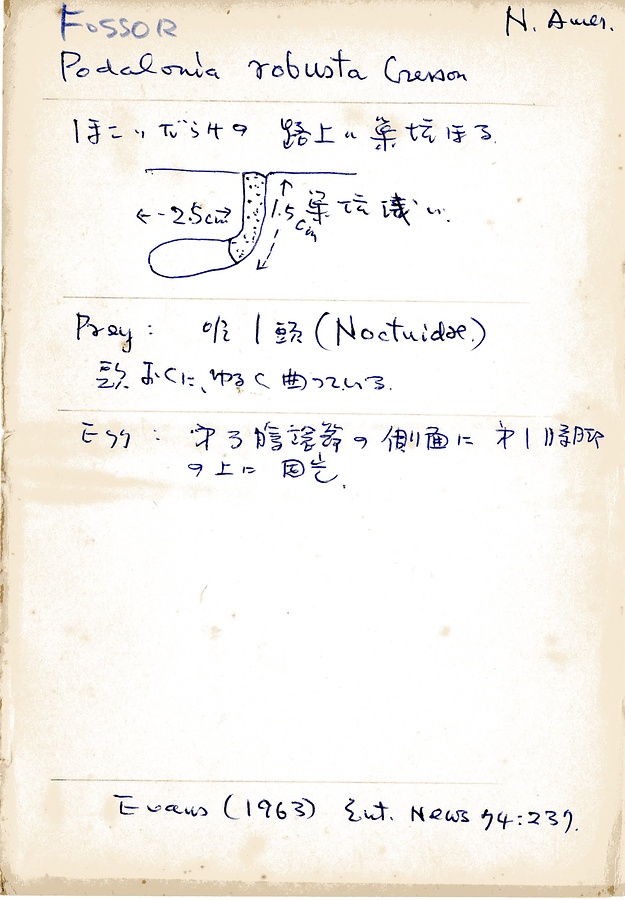 FOSSOR
N. Amer.
Podalonia robusta Cresson
ほこりだらけの 路上に 巣坑ほる.
←-2.5cm→
1.5cm
巣坑浅い.
Prey : 唯 1 頭 (Noctuidae.)
頭 おくに、ゆるく曲っている.
Egg : 才3腹環節の側面に 才1
の上に 固定.
Evans (1963) Ent. News 74:237.